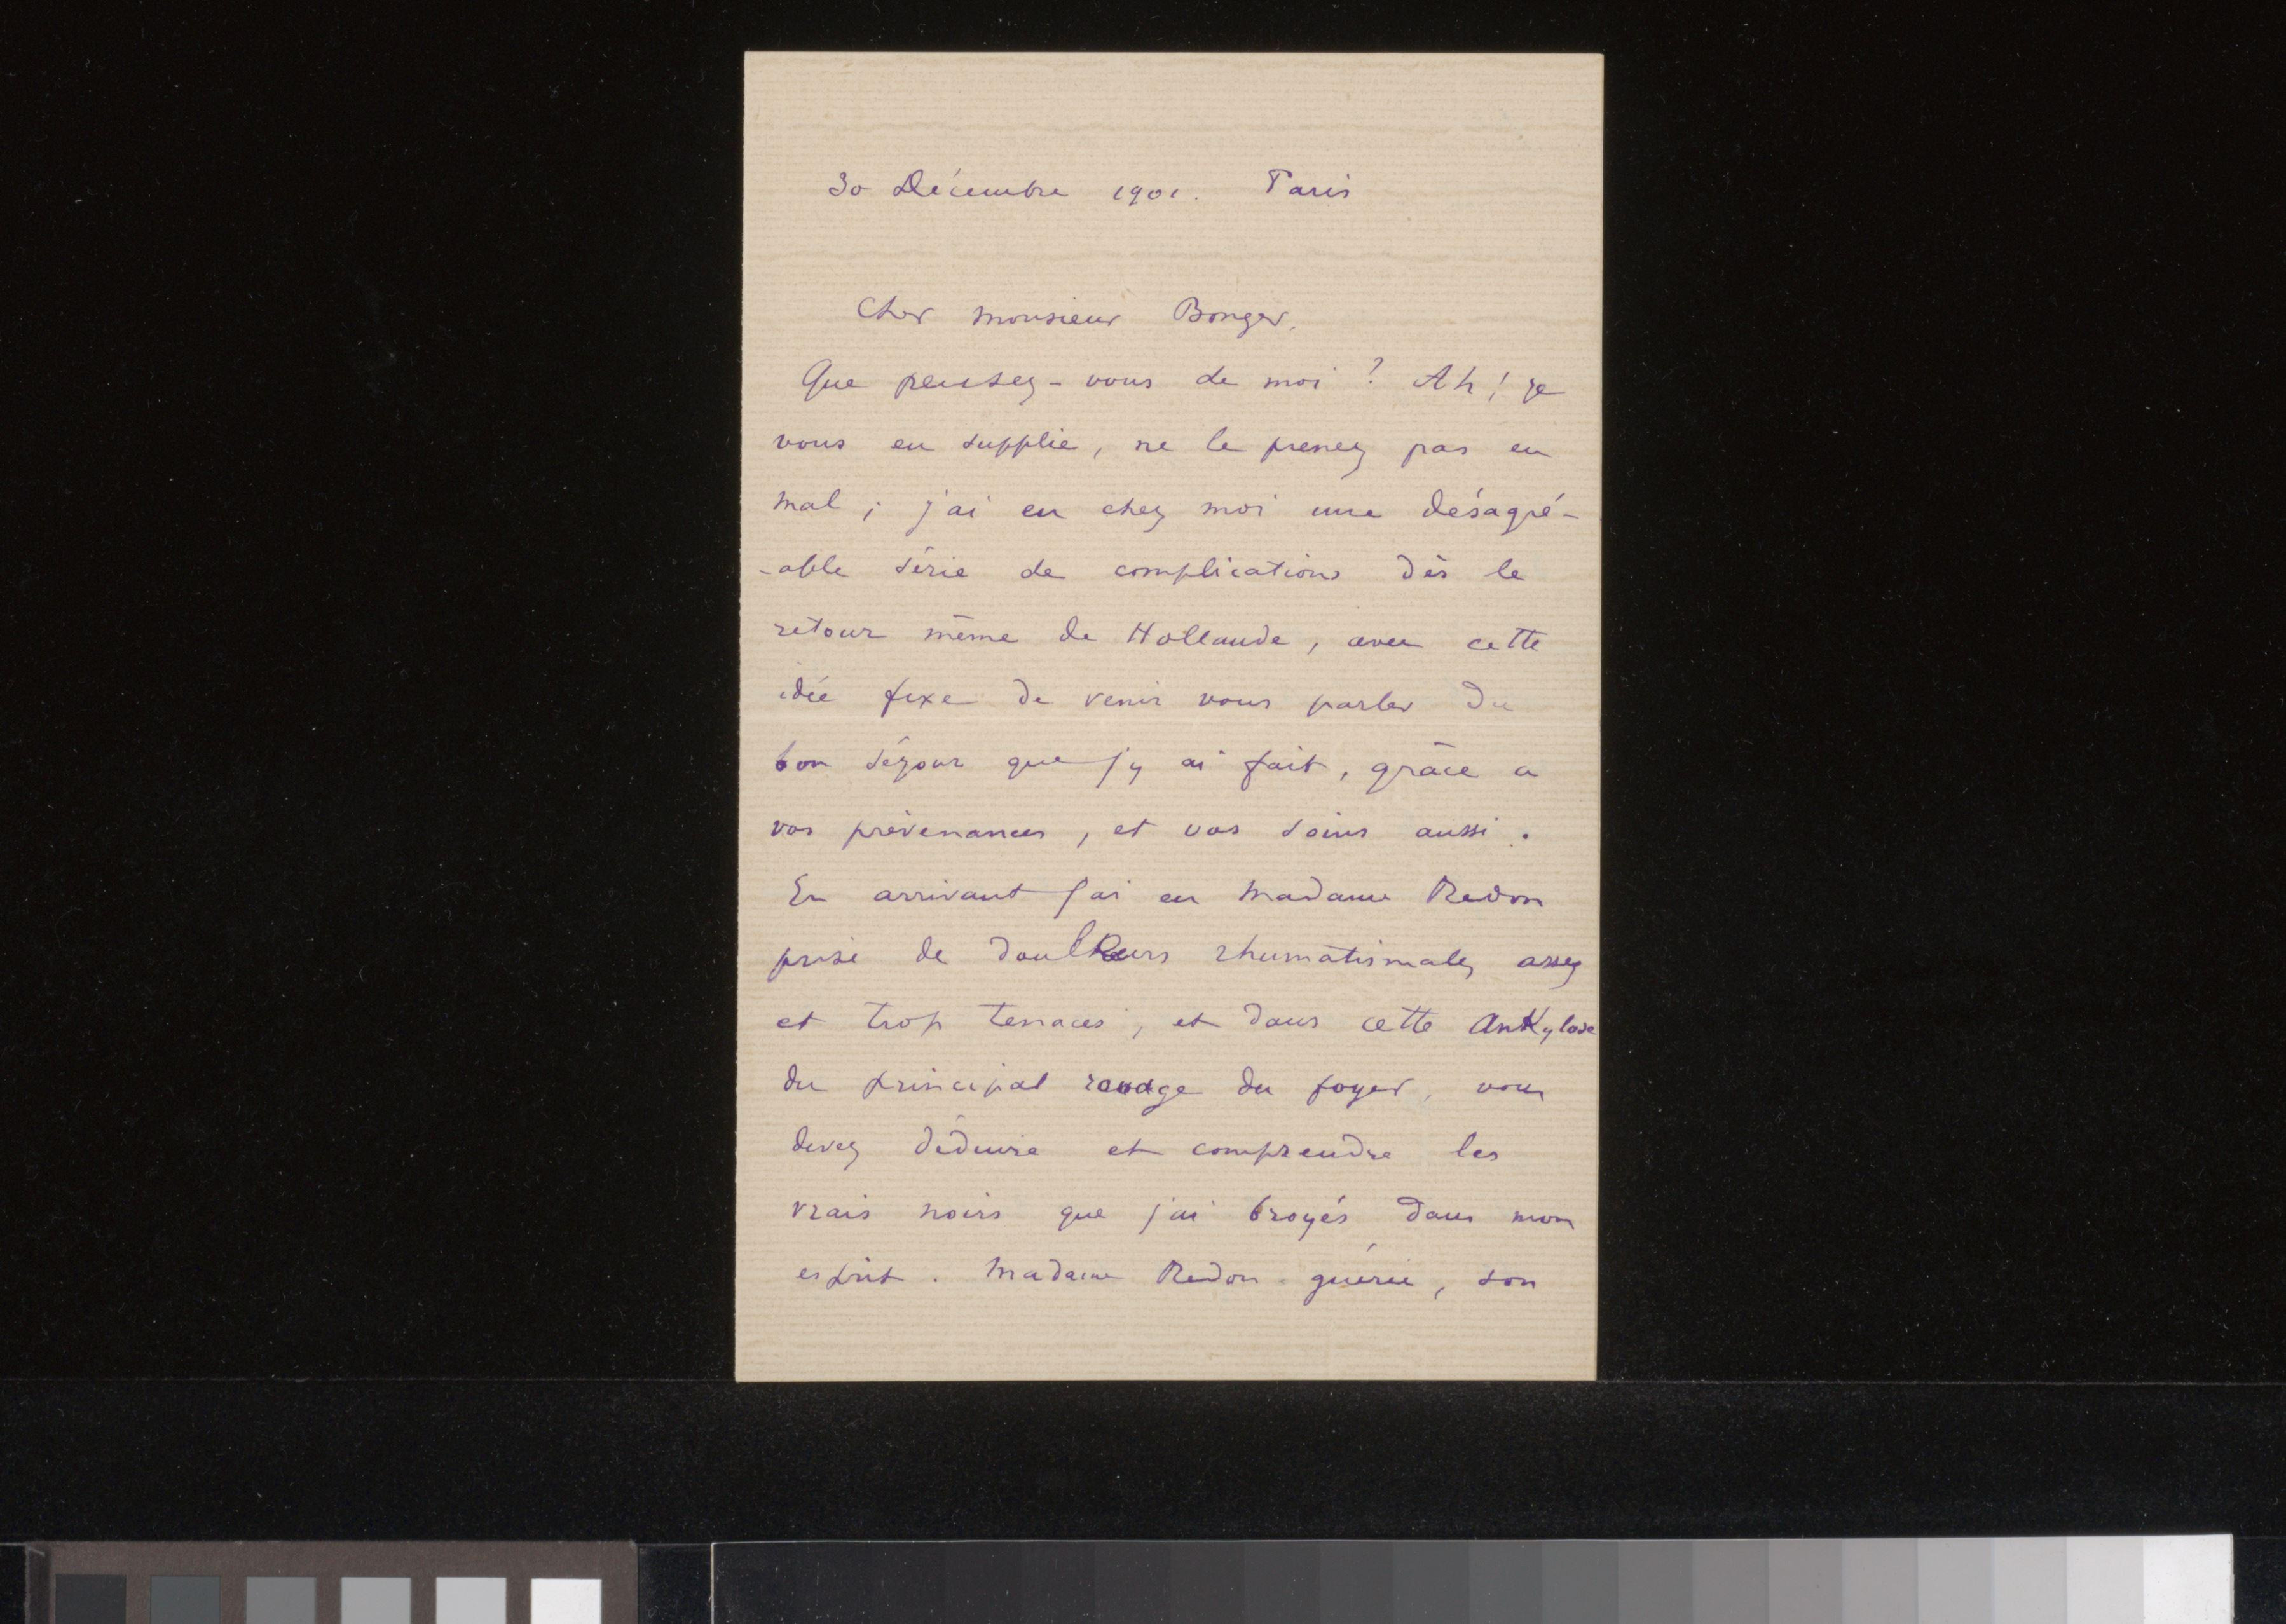 30 Décembre 1901. Paris
Cher Monsieur Bonger,
Que pensez-vous de moi ? Ah ! je
vous en supplie, ne le prenez pas en
mal ; j'ai eu chez moi une désagré-
-able série de complications dès le
retour même de Hollande, avec cette
idée fixe de venir vous parler du
bon séjour que j'y ai fait, grâce a
vos prévenances, et vos soins aussi.
En arrivant j'ai eu Madame Redon
prise de douleurs rhumatismales, assez
et trop tenaces, et dans cette ankylose
du principal rouage du foyer, vous
devez déduire et comprendre les
vrais noirs que j'ai broyés dans mon
esprit. Madame Redon guérie, son